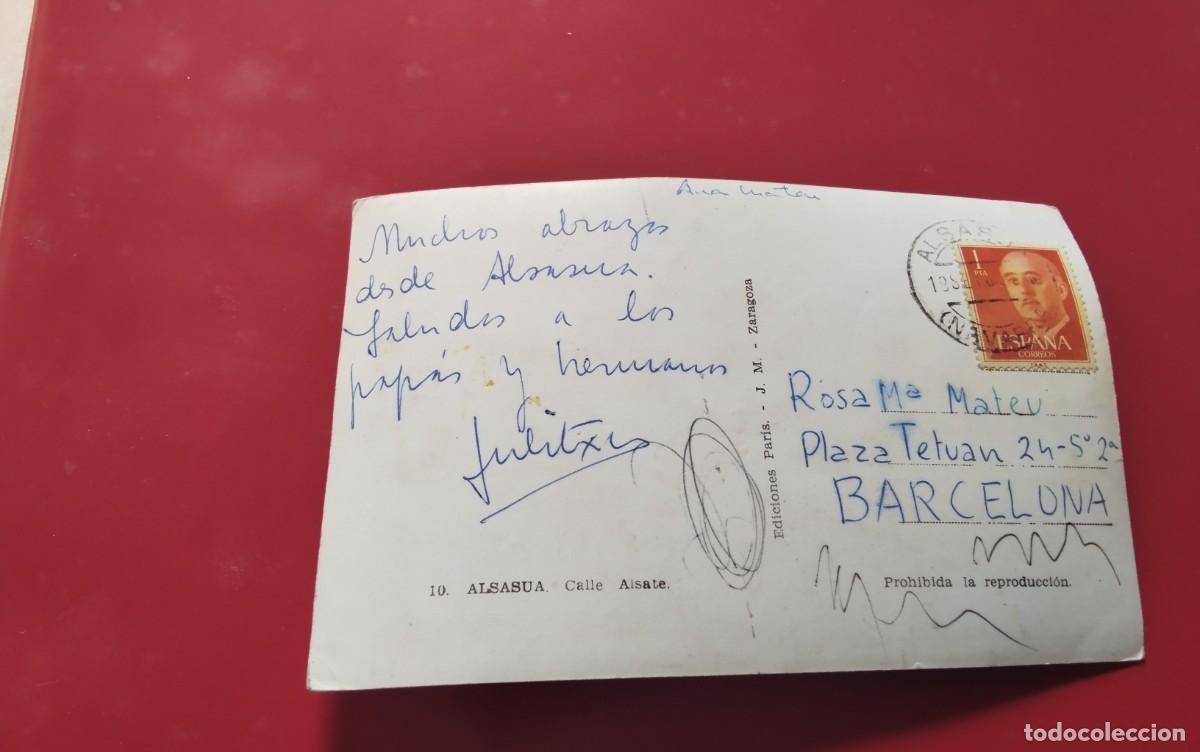 Muchos abrazos
desde Alsasua.
Saludos a los
papás y hermanos
Julitxu
10. ALSASUA. Calle Alsate.
Ediciones París. - J. M. - Zaragoza
Ana
ALSAS
1 PTA
ESPAÑA
CORREOS
Rosa Mª Mateu
Plaza Tetuan 24-5º 2ª
BARCELONA
Prohibida la reproducción.
todocoleccion